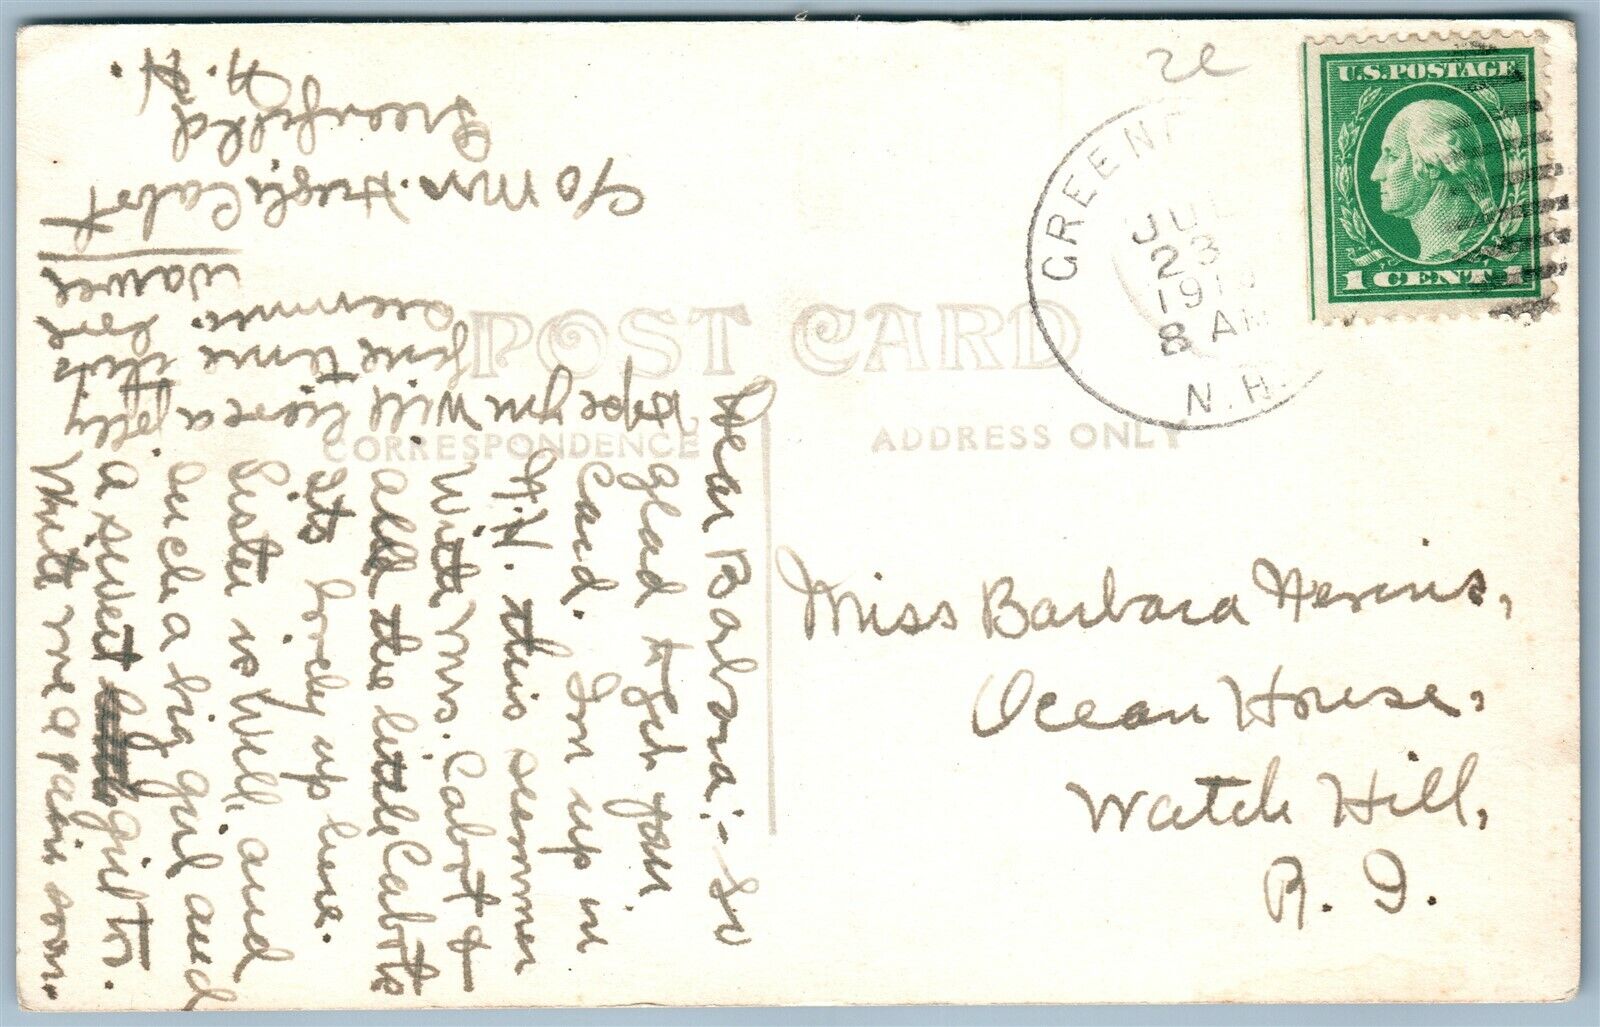 2c
U.S.POSTAGE
1 CENT 1
GREEN
JUL
23
191
8 AM
N.H.
POST CARD
CORRESPONDENCE
ADDRESS ONLY
Miss Barbara
Ocean House,
Watch Hill,
R. I.
Dear Barbara:- So
glad to get your
Card. I'm up in
N.H. this summer
with Mrs. Cabot &
all the little Cabots
Its lovely up here.
Sister is well, and
such a big girl and
a sweet girl too.
Write me again som-
etime
hope you will have a jolly
fine time this
summer. love
%Mrs. Hugh Cabot
Greenfield
N.H.